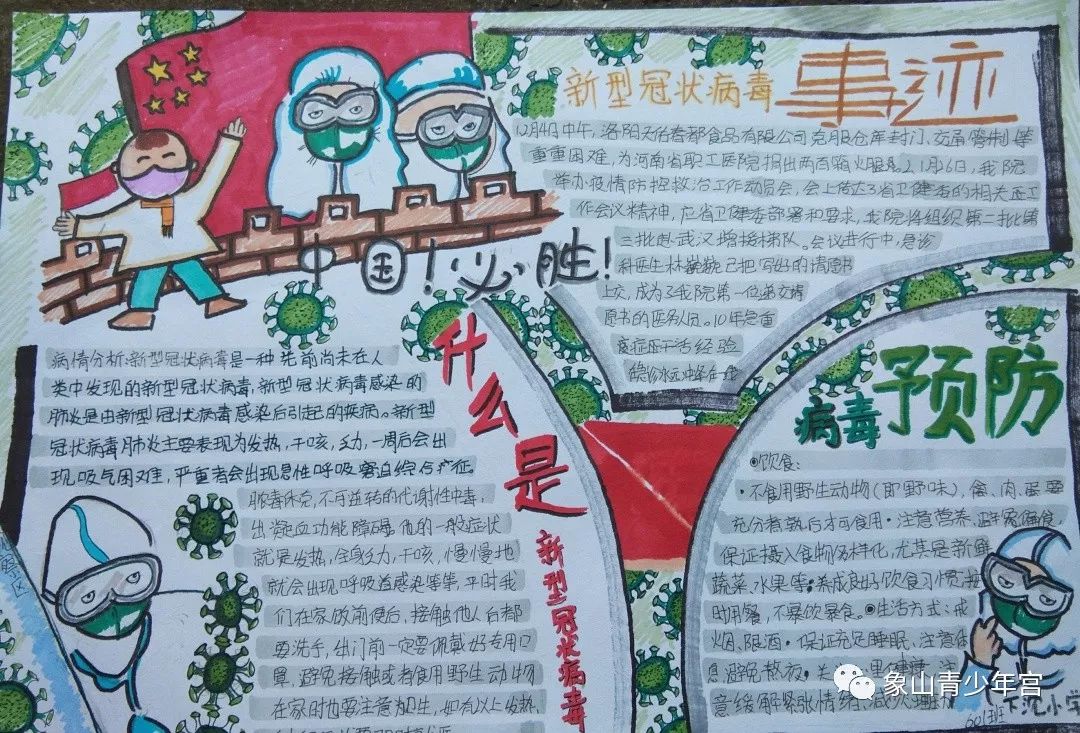 新型冠状病毒 事迹
12月4日中午,洛阳天佑春都食品有限公司克服仓库封门、交通管制等
重重困难,为河南省职工医院捐出两百箱火腿
1月6日,我院
举办疫情防控救治工作动员会,会上传达了省卫健委的相关
工作会议精神,应省卫健委部署和要求,我院将组织第二批
三批赴武汉增援梯队。会议进行中,急诊
科医生林 已把写好的请愿书
上交,成为了我院第一位递交请
愿书的医务人员。10年急重
中国!必胜!
什么是
新型冠状病毒
病情分析:新型冠状病毒是一种先前尚未在人
类中发现的新型冠状病毒,新型冠状病毒感染的
肺炎是由新型冠状病毒感染后引起的疾病。新型
冠状病毒肺炎主要表现为发热,干咳,乏力,一周后会出
现吸气困难,严重者会出现急性呼吸窘迫综合征
脓毒休克,不可逆转的代谢性中毒,
出凝血功能障碍,他的一般症状
就是发热,全身乏力,干咳,慢慢地
就会出现呼吸道感染等等,平时我
们在家饭前便后,接触他人后都
要洗手,出门前一定要佩戴好专用口
罩,避免接触或者食用野生动物
在家时也要注意卫生,如有以上发热,
病毒 预防
•饮食:
·不食用野生动物(即野味),禽、肉、蛋要
充分煮熟后才可食用·注意营养、避免偏食,
保证摄入食物多样化,尤其是新鲜
蔬菜、水果等;养成良好饮食习惯,按
时用餐,不暴饮暴食。•生活方式:戒
烟、限酒·保证充足睡眠、注意休
息,避免熬夜·
意缓解紧张情绪、减
下沈小学
601班
象山青少年宫